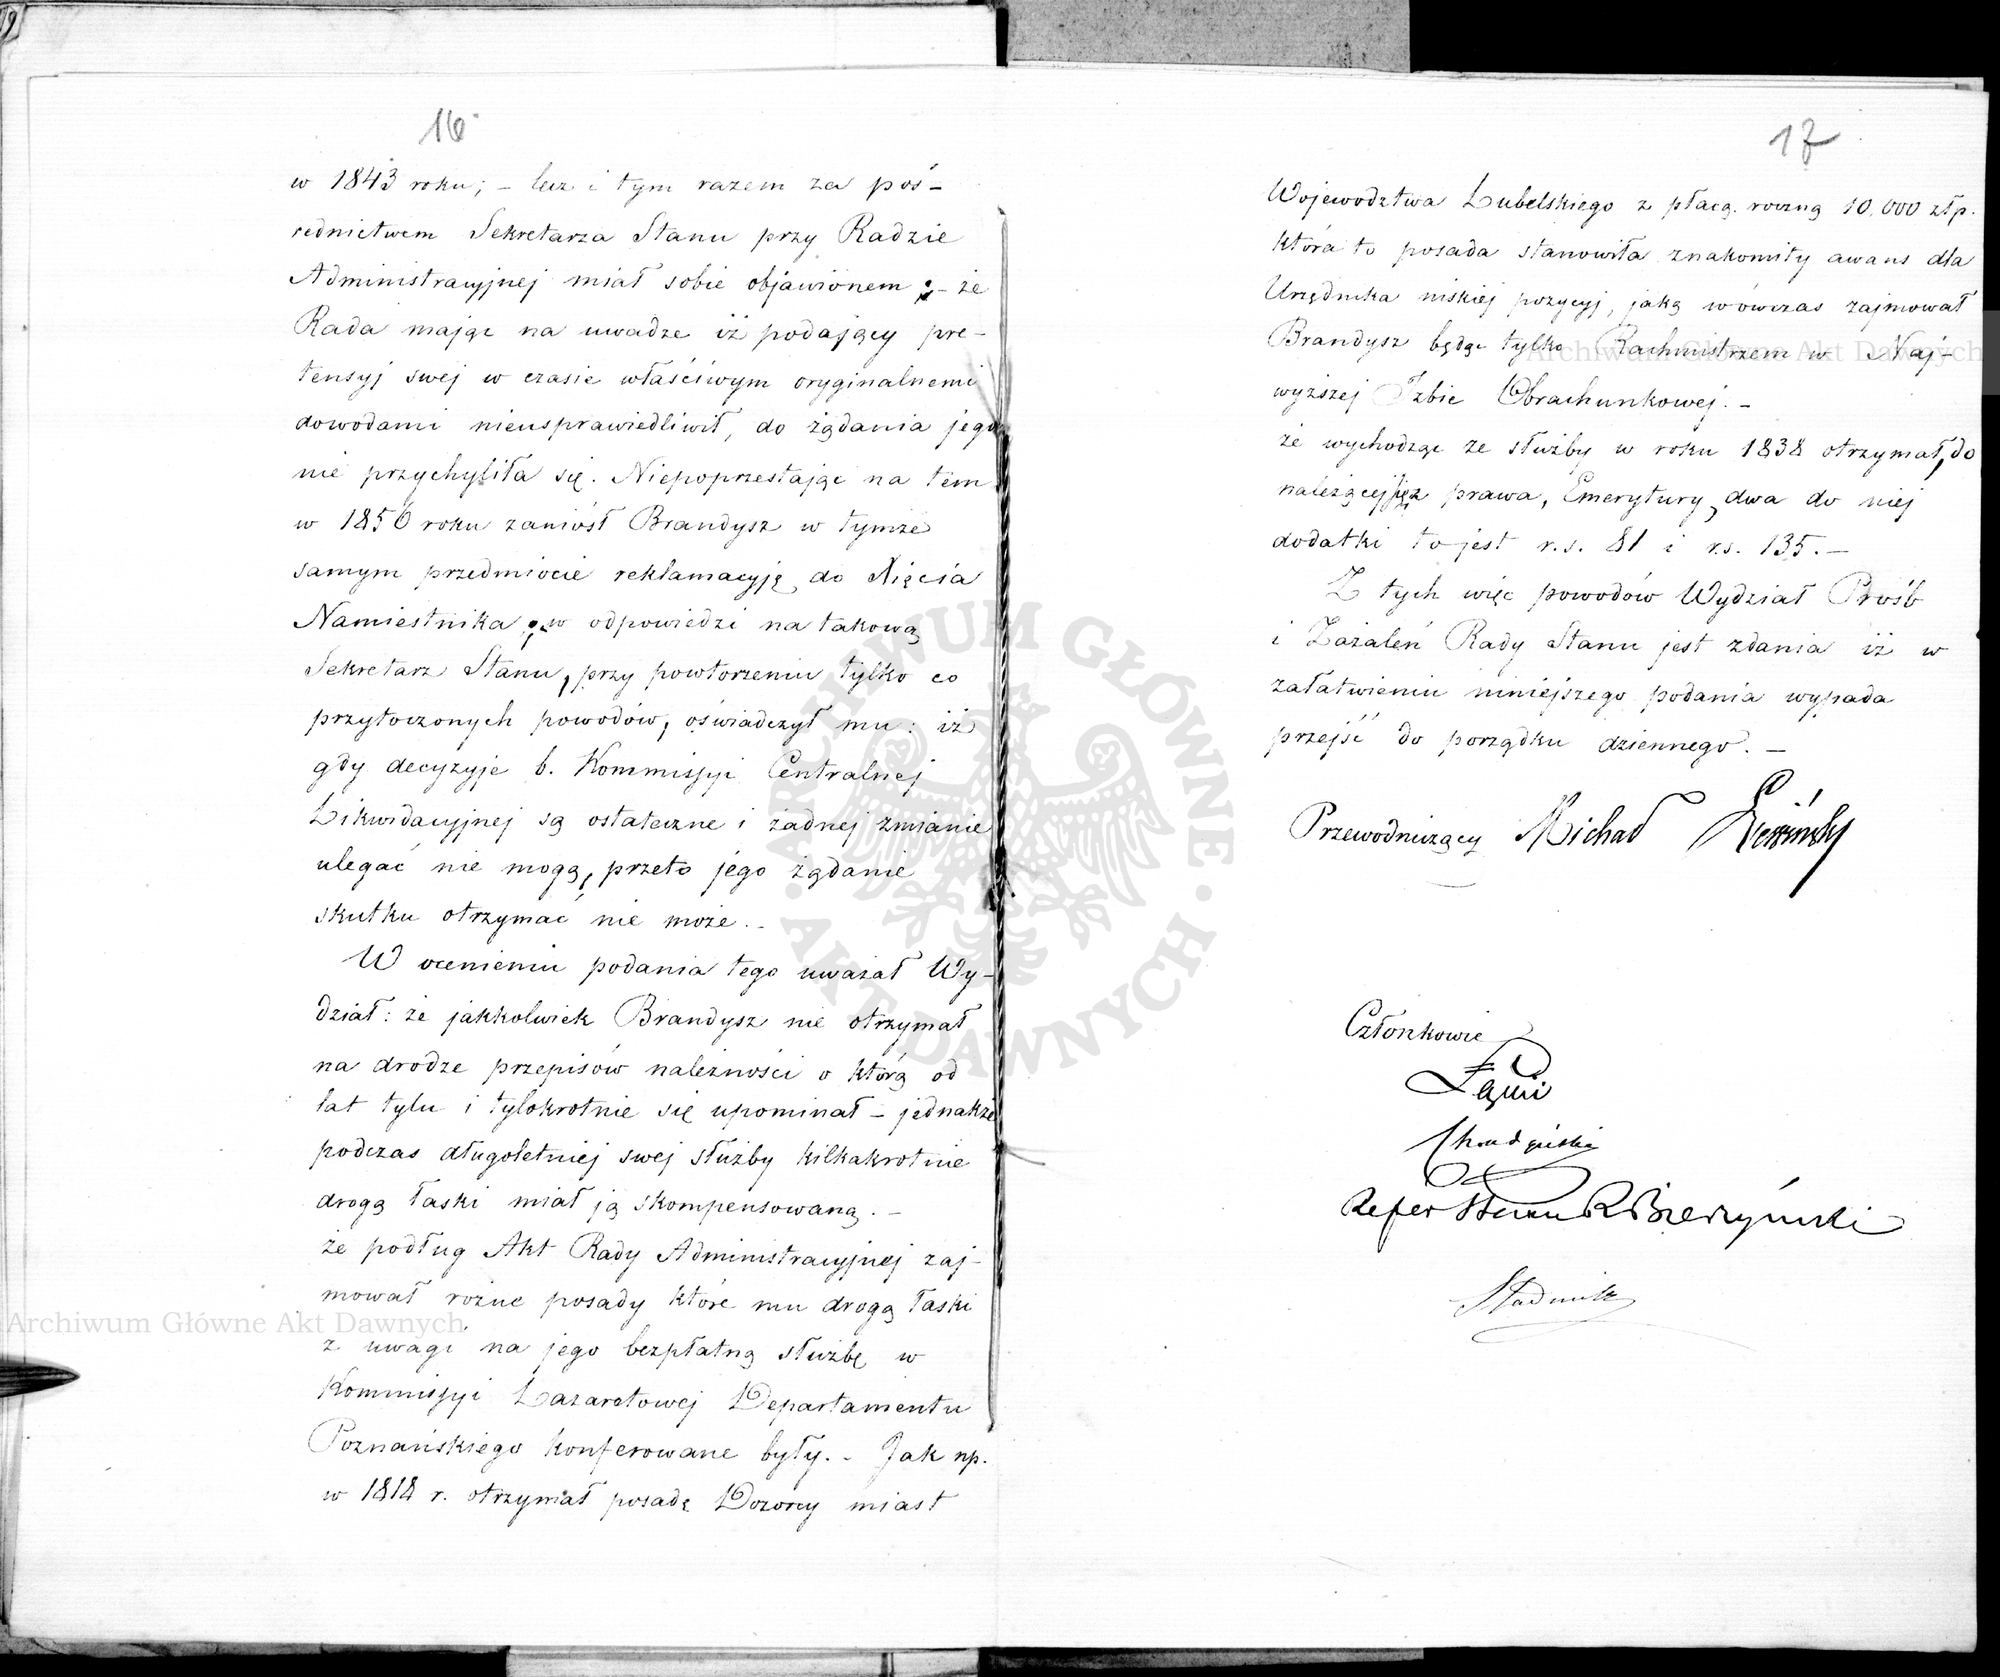 16
w 1843 roku; – lecz i tym razem za poś–
rednictwem Sekretarza Stanu przy Radzie
Administracyjnej miał sobie objawionem ; – że
Rada mając na uwadze iż podający pre–
tensyj swej w czasie właściwym oryginalnemi
dowodami nieusprawiedliwił, do żądania jego
nie przychyliła się. Niepoprzestając na tem
w 1856 roku zaniósł Brandysz w tymże
samym przedmiocie reklamacyję do Xięcia
Namiestnika ; w odpowiedzi na takową
Sekretarz Stanu, przy powtorzeniu tylko co
przytoczonych powodów, oświadczył mu : iż
gdy decyzyje b. Kommissyi Centralnej
Likwidacyjnej są ostateczne i żadnej zmianie
ulegać nie mogą, przeto jego żądanie
skutku otrzymać nie może. –
W ocenieniu podania tego uważał Wy–
dział : że jakkolwiek Brandysz nie otrzymał
na drodze przepisów należności o którą od
lat tylu i tylokrotnie się upominał – jednakże
podczas długoletniej swej służby kilkakrotnie
drogą łaski miał ją skompensowaną. –
że podług Akt Rady Administracyjnej zaj–
mował rożne posady które mu drogą łaski
z uwagi na jego bezpłatną służbę w
Kommissyi Lazaretowej Departamentu
Poznańskiego konferowane były. – Jak np.
w 1818 r. otrzymał posadę Dozorcy miast
17
Województwa Lubelskiego z płacą roczną 10,000 złp.
która to posada stanowiła znakomity awans dla
Urzędnika niskiej pozycyj, jaką wówczas zajmował
Brandysz będąc tylko Rachmistrzem w Naj–
wyższej Izbie Obrachunkowej. –
że wychodząc ze służby w roku 1838 otrzymał, do
należącej się z prawa, Emerytury, dwa do niej
dodatki to jest r.s. 81 i r.s. 135. –
Z tych więc powodów Wydział Prośb
i Zażaleń Rady Stanu jest zdania iż w
załatwieniu niniejszego podania wypada
przejść do porządku dziennego. –
Przewodniczący Michał
Członkowie
Łęski
Refer Stanu R Bierzyński
Archiwum Główne Akt Dawnych
Archiwum Główne Akt Dawnych
ARCHIWUM GŁÓWNE
AKT DAWNYCH